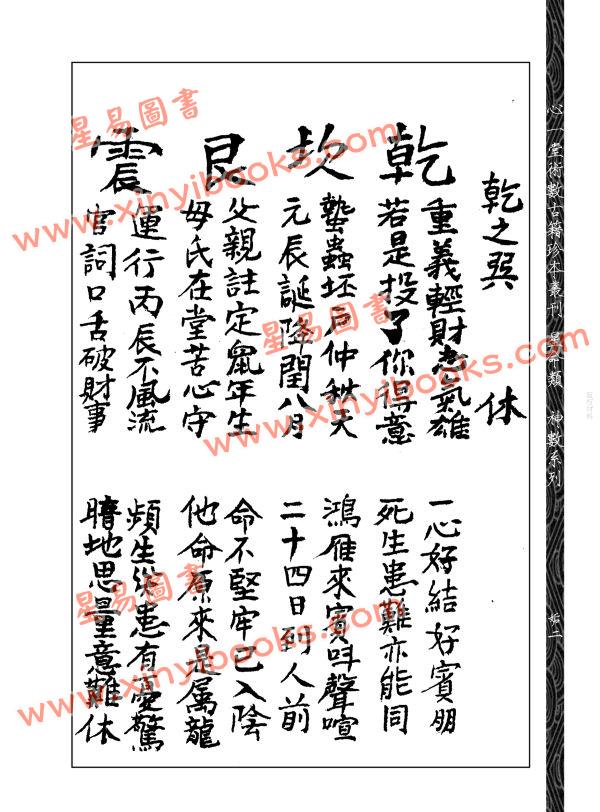 乾之巽 休
乾
重義輕財志氣雄 一心好結好賓朋
若是投了你得意 死生患難亦能同
坎
蟄蟲坯戶仲秋天 鴻雁來賓叫聲喧
元辰誕降閏八月 二十四日到人前
艮
父親註定鼠年生 命不堅牢已入陰
母氏在堂苦心守 他命原來是屬龍
震
運行丙辰不風流 頻生災患有憂驚
官詞口舌破財事 暗地思量意難休
心一堂術數古籍珍本叢刊 星命類 神數系列
星易圖書
www.xinyibooks.com
星易圖書
www.xinyibooks.com
星易圖書
www.xinyibooks.com